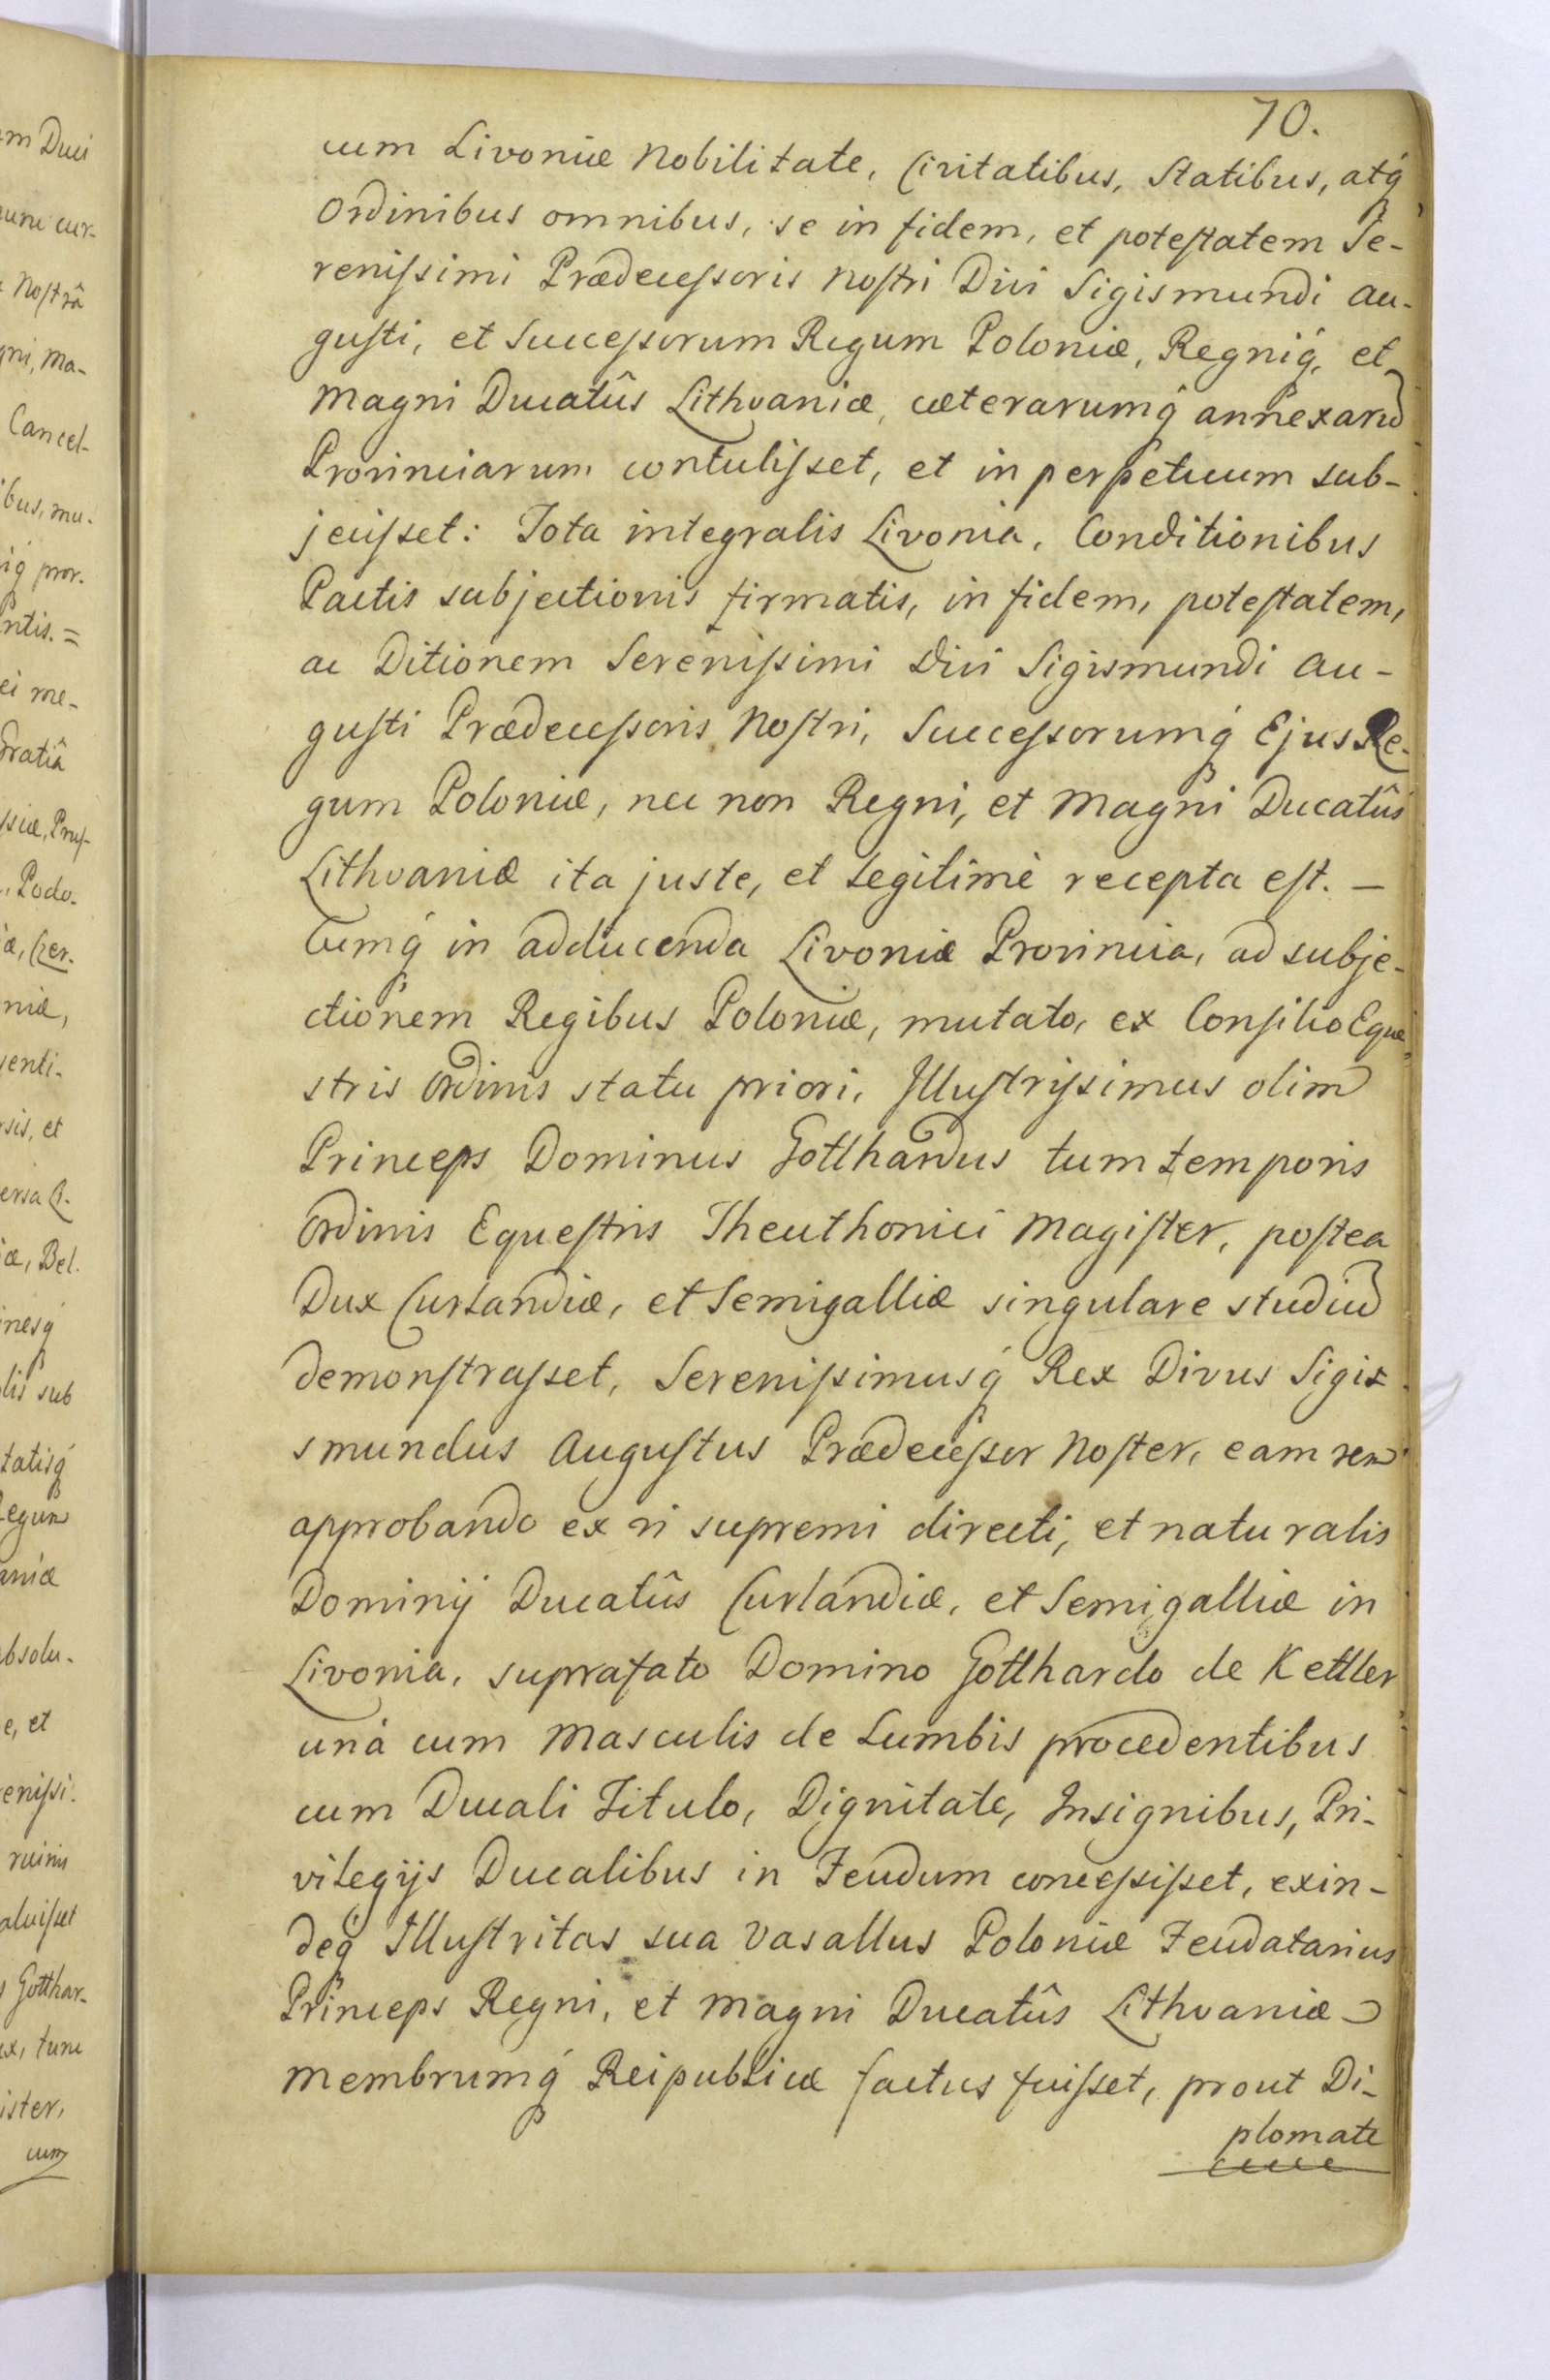 70.
cum Livoniæ Nobilitate, Civitatibus, Statibus, atq́
Ordinibus omnibus, se in fidem, et potestatem Se-
renissimi Prædecessoris Nostri Divi Sigismundi Au-
gusti, et Successorum Regum Poloniæ, Regniq́, et
Magni Ducatûs Lithvaniæ, cæterarumq́ annexarū
Provinciarum contulisset, et in perpetuum sub-
jecisset: Tota integralis Livonia, Conditionibus
Pactis subjectionis firmatis, in fidem, potestatem,
ac Ditionem Serenissimi Divi Sigismundi Au-
gusti Prædecessoris Nostri, Successorumq́ Ejus Re-
gum Poloniæ, nec non Regni, et Magni Ducatûs
Lithvaniæ ita juste, et legitimè recepta est. –
Cumq́ in adducenda Livoniæ Provincia, ad subje-
ctionem Regibus Poloniæ, mutato, ex Consilio Eque-
stris Ordinis statu priori, Illustrissimus olim
Princeps Dominus Gotthardus tum temporis
Ordinis Equestris Theuthonici Magister, postea
Dux Curlandiæ, et Semigalliæ singulare studiū
demonstrasset, Serenissimusq́ Rex Divus Sigis
smundus Augustus Prædecessor Noster, eam rem
approbando ex vi supremi directi, et naturalis
Dominij Ducatûs Curlandiæ, et Semigalliæ in
Livonia, suprafato Domino Gotthardo de Kettler
unà cum Masculis de Lumbis procedentibus
cum Ducali Titulo, Dignitate, Insignibus, Pri-
vilegijs Ducalibus in Feudum concessisset, exin-
deq́ Illustritas sua Vasallus Poloniæ Feudatarius
Princeps Regni, et Magni Ducatûs Lithvaniæ
membrumq́ Reipublicæ factus fuisset, prout Di-
plomate